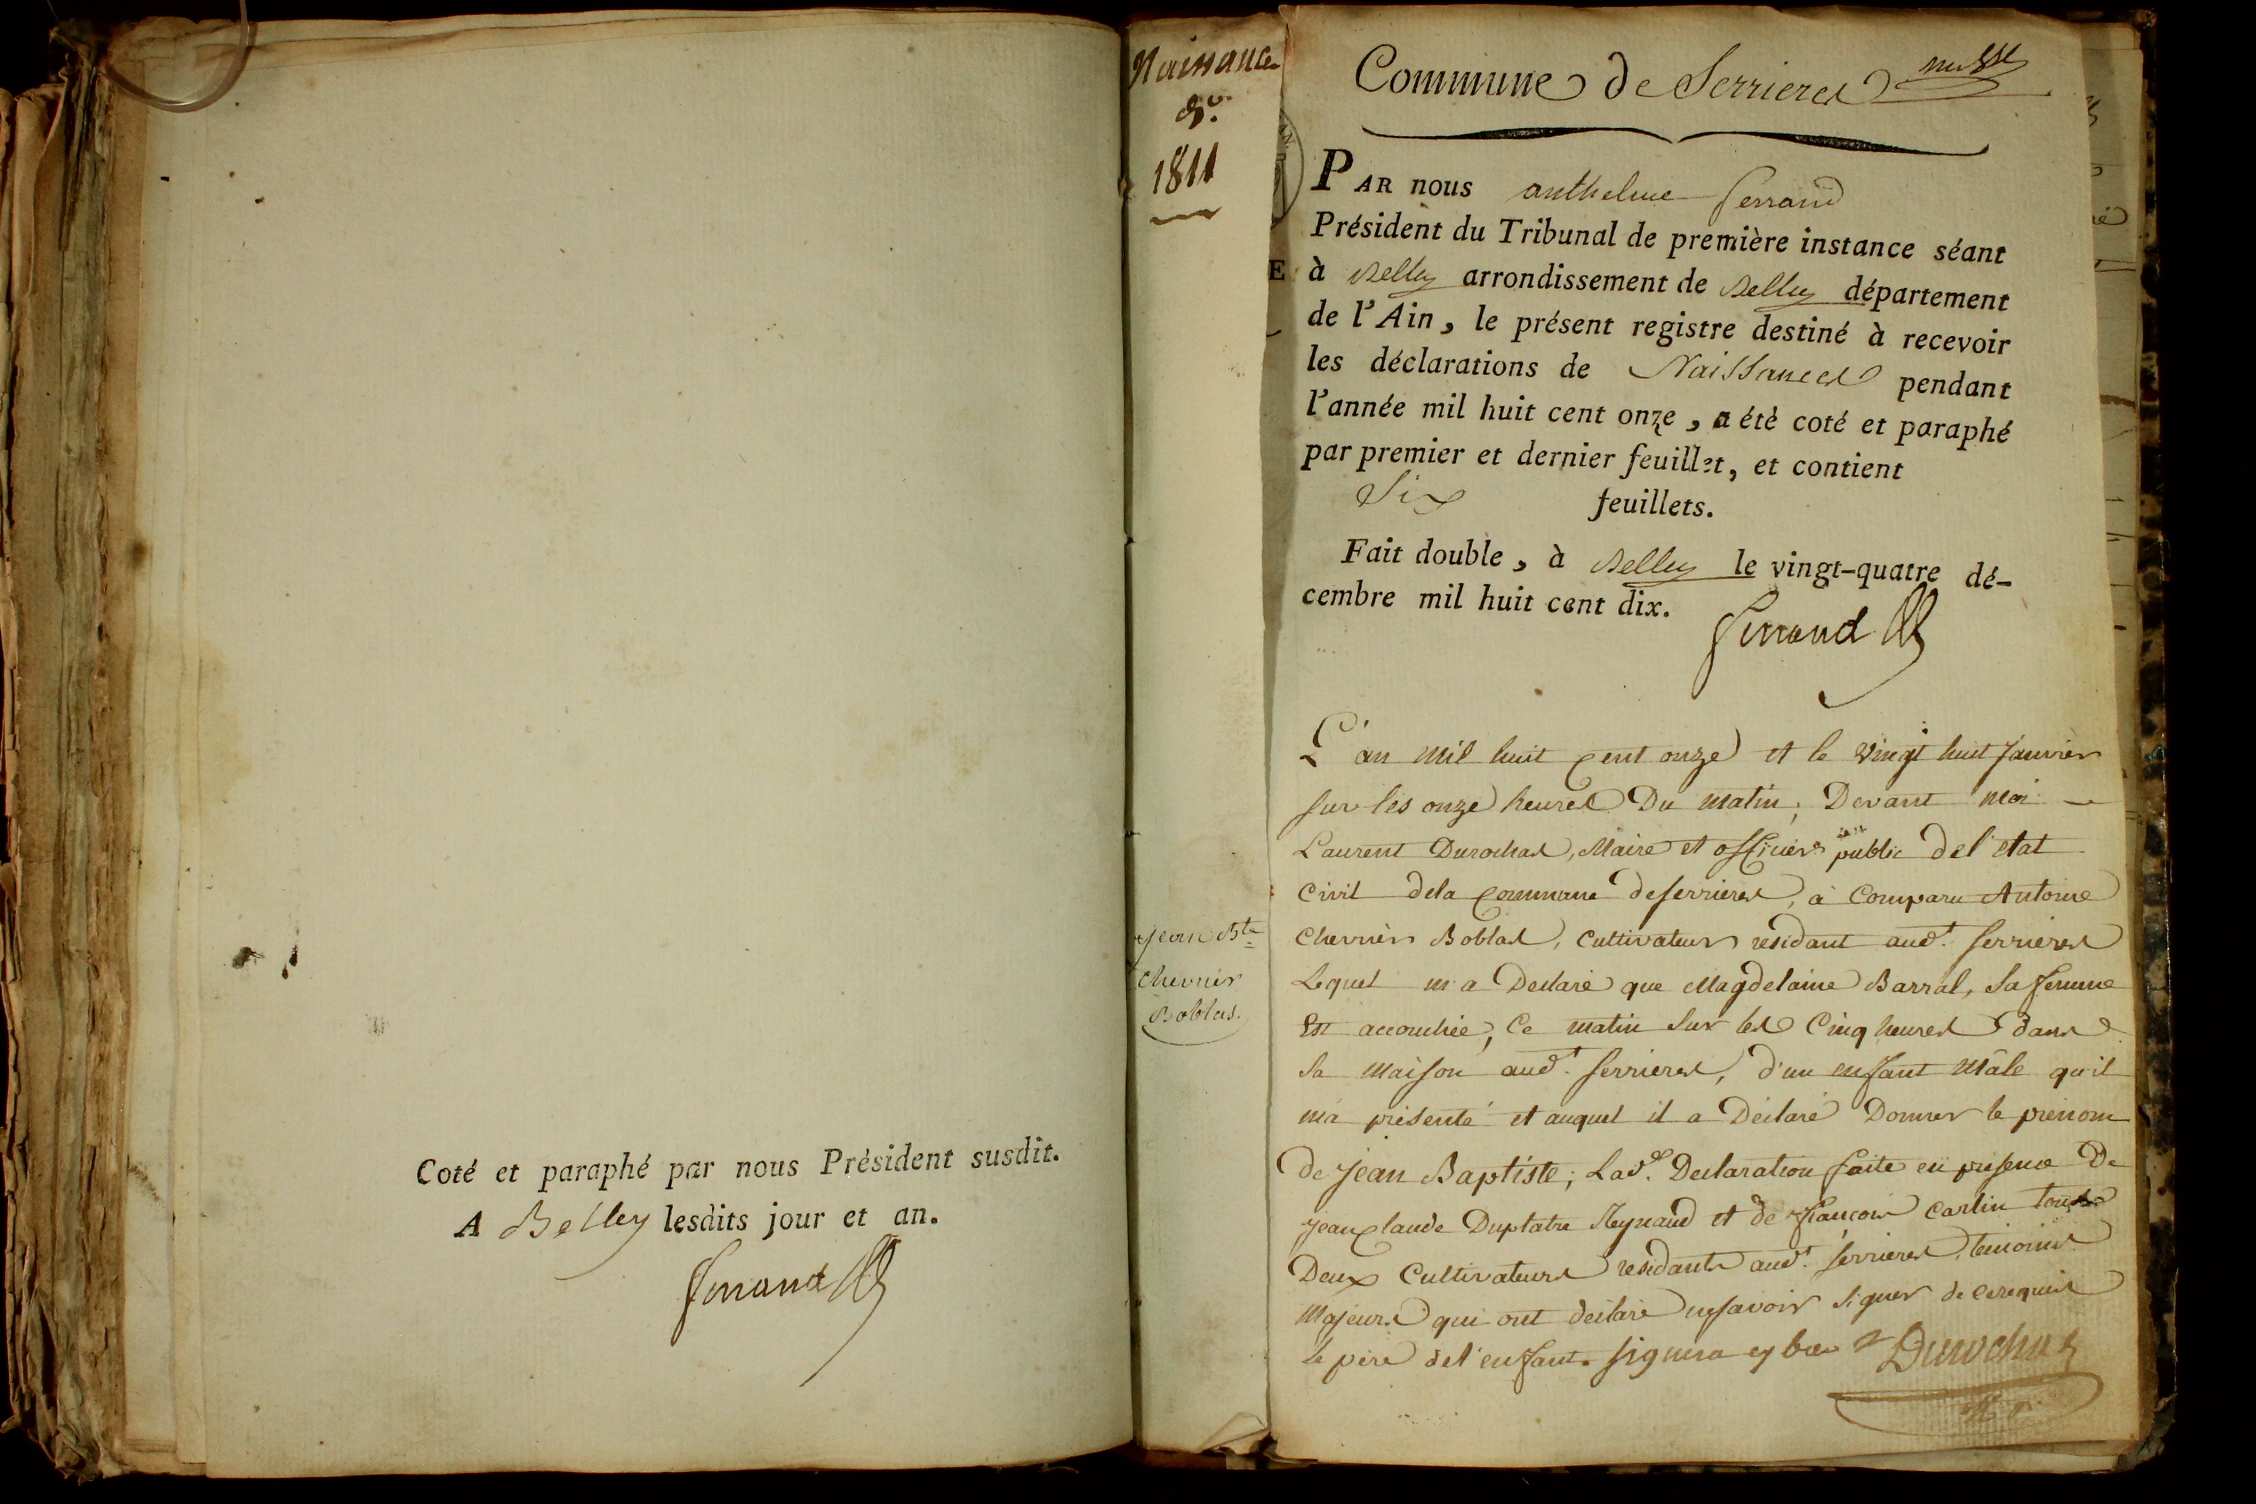 Coté et paraphé par nous Président susdit.
A Belley lesdits jour et an.
ferrand
Naissance
1811
Jean Bte
Chevrier
Boblas.
Commune de Serrieres
PAR nous anthelme ferrand
Président du Tribunal de première instance séant
à Belley arrondissement de Belley département
de l'Ain, le présent registre destiné à recevoir
les déclarations de Naissances pendant
l'année mil huit cent onze, a été coté et paraphé
par premier et dernier feuillet, et contient
Six feuillets.
Fait double, à Belley le vingt-quatre dé-
cembre mil huit cent dix.
ferrand
L'an mil huit cent onze et le vingt huit Janvier
sur les onze heures Du matin, Devant moi
Laurent Durochas, Maire et officier public del'etat
Civil dela Commune deserrieres, a Comparu Antoine
Chevrier Boblas, Cultivateur residant aud. serrieres
Lequel m'a Declaré que Magdelaine Barral, sa femme
Est accouchée, Ce matin sur les Cinq heures dans
sa maison aud. serrieres, d'un enfant Mâle qu'il
m'a présenté et auquel il a Déclaré Donner le prénom
de Jean Baptiste; Lad. Declaration faite en presence De
Jean Claude Duplatre Reynaud et de françois Carlin tous
Deux Cultivateurs residants aud. serrieres, temoins
Majeurs qui ont declaré ne savoir signer de ce requis
Le père del'enfant signera
Durochas